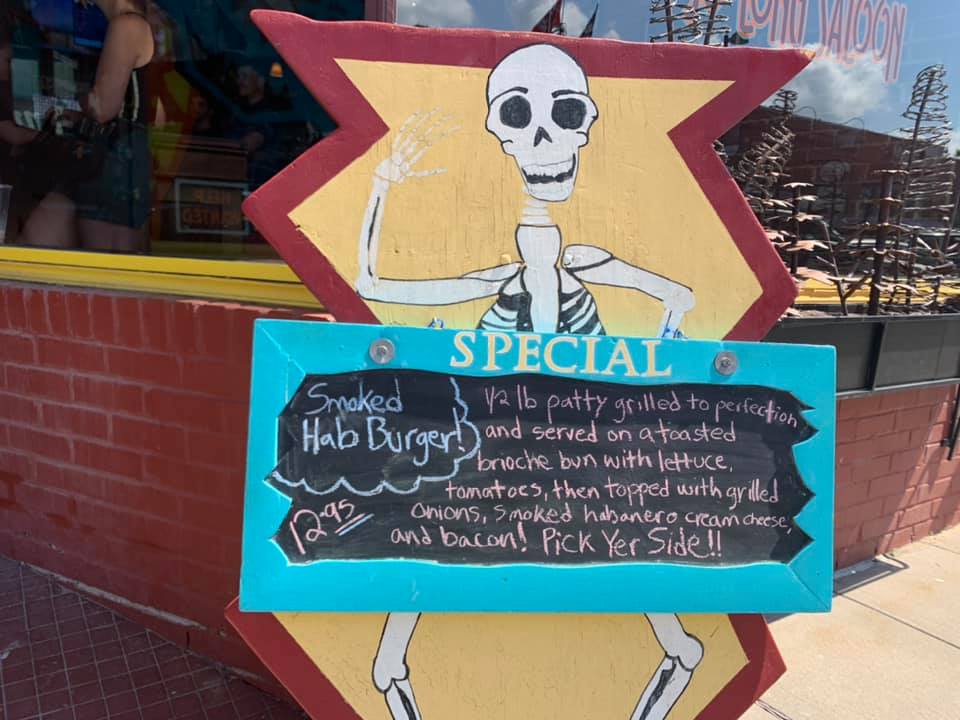 LONG SALOON
SPECIAL
Smoked
Hab Burger!
12.95
1/2 lb patty grilled to perfection
and served on a toasted
brioche bun with lettuce,
tomatoes, then topped with grilled
onions, smoked habanero cream cheese,
and bacon! Pick Yer Side!!